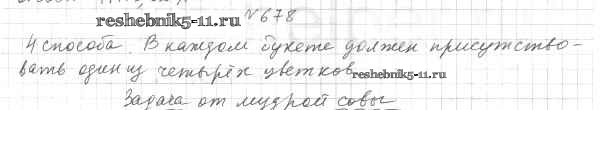 reshebnik5-11.ru √678
4 способа. В каждом букете должен присутство-
вать один из четырёх цветков reshebnik5-11.ru
Задача от мудрой совы